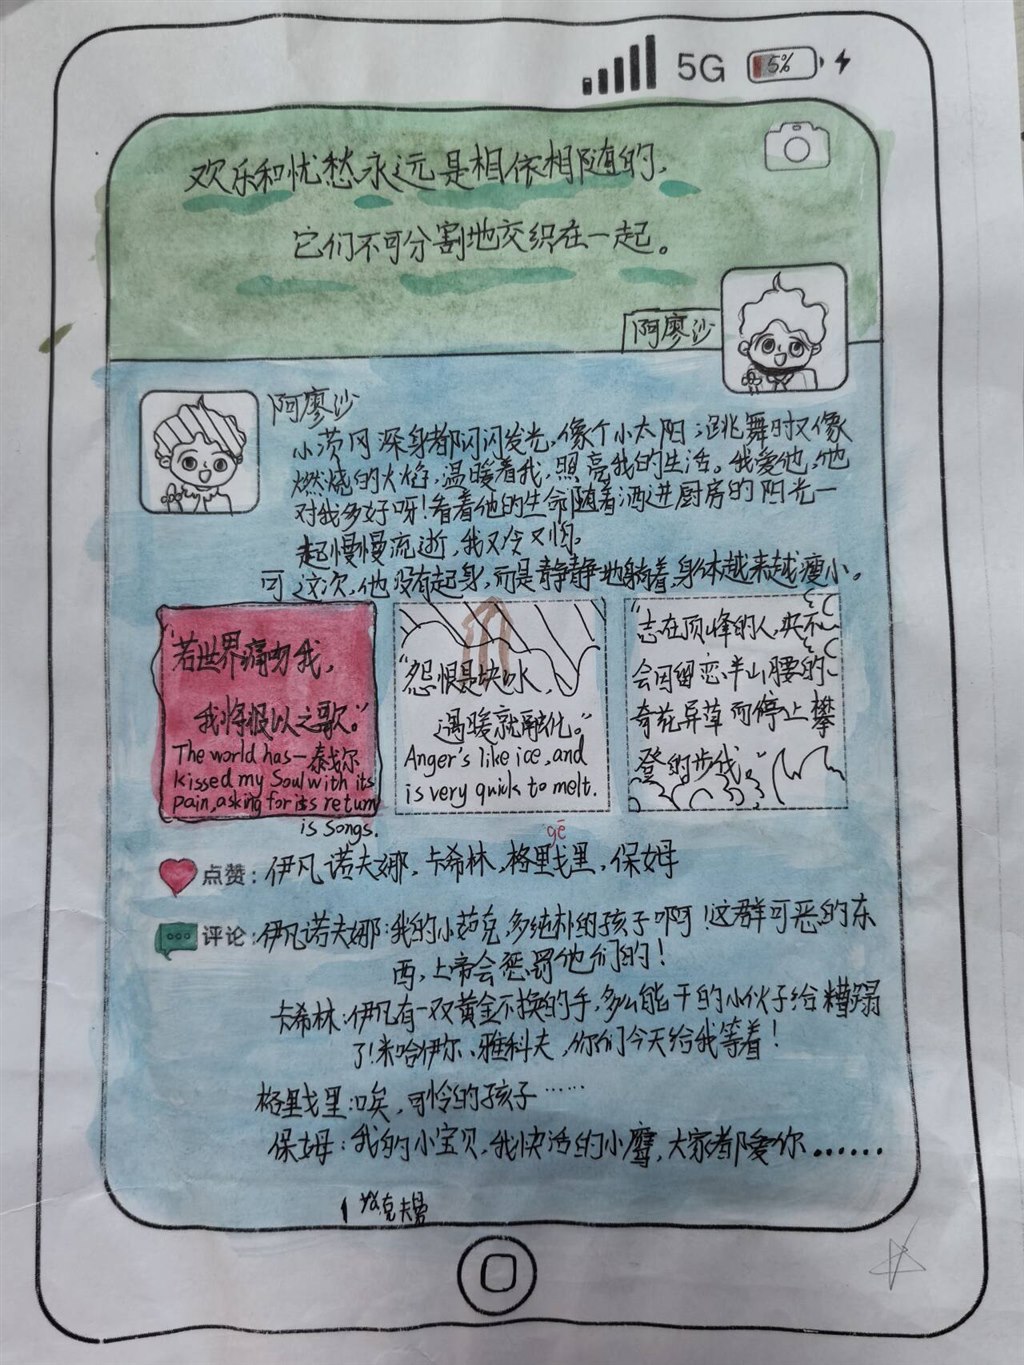 5G 5%
欢乐和忧愁永远是相依相随的,
它们不可分割地交织在一起。
阿廖沙
阿廖沙
小茨冈浑身都闪闪发光,像个小太阳;跳舞时又像
燃烧的火焰,温暖着我,照亮我的生活。我爱他,他
对我多好呀!看着他的生命随着洒进厨房的阳光一
起慢慢流逝,我又冷又怕。
可这次,他没有起身,而是静静地躺着,身体越来越瘦小。
"若世界痛吻我,
我将报以之歌。"
The world has—泰戈尔
kissed my Soul with its
pain, asking for its return
is Songs.
"怨恨是块冰,
遇暖就融化。"
Anger's like ice, and
is very quick to melt.
"志在顶峰的人,决不
会因留恋半山腰的
奇花异草而停止攀
登的步伐。"
gē
点赞:伊凡诺夫娜,卡希林,格里戈里,保姆
评论:伊凡诺夫娜:我的小茹克,多纯朴的孩子啊!这群可恶的东
西,上帝会惩罚他们的!
卡希林:伊凡有一双黄金不换的手,多么能干的小伙子给糟蹋
了!米哈伊尔、雅科夫,你们今天给我等着!
格里戈里:唉,可怜的孩子……
保姆:我的小宝贝,我快活的小鹰,大家都爱你......